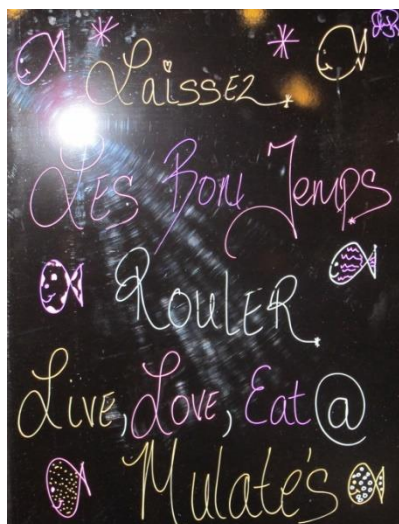 Laissez
Les Bon Temps
Rouler
Live, Love, Eat @
Mulate's